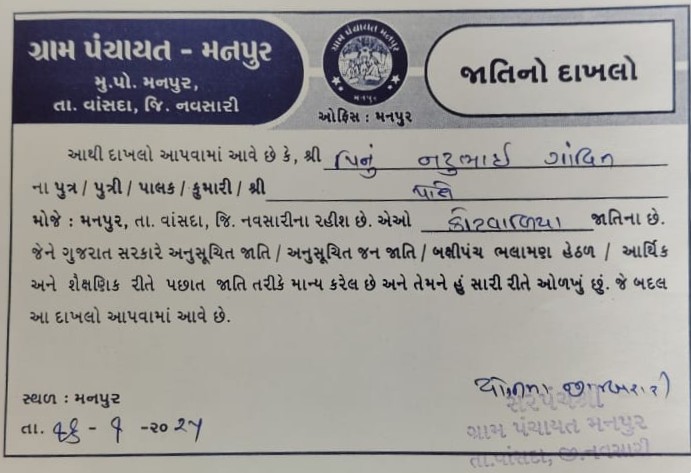 ગ્રામ પંચાયત - મનપુર
મુ.પો. મનપુર,
તા. વાંસદા, જિ. નવસારી
ગ્રામ પંચાયત મનપુર
મનપુર
ઓફિસ : મનપુર
જાતિનો દાખલો
આથી દાખલો આપવામાં આવે છે કે, શ્રી પિનું નટુભાઈ ગાંવિત
ના પુત્ર / પુત્રી / પાલક / કુમારી / શ્રી પોતે
મોજે : મનપુર, તા. વાંસદા, જિ. નવસારીના રહીશ છે. એઓ કોટવાળિયા જાતિના છે.
જેને ગુજરાત સરકારે અનુસૂચિત જાતિ / અનુસૂચિત જન જાતિ / બક્ષીપંચ ભલામણ હેઠળ / આર્થિક
અને શૈક્ષણિક રીતે પછાત જાતિ તરીકે માન્ય કરેલ છે અને તેમને હું સારી રીતે ઓળખું છું. જે બદલ
આ દાખલો આપવામાં આવે છે.
સ્થળ : મનપુર
તા. - ૧ -૨૦૨૫
સરપંચશ્રી
ગ્રામ પંચાયત મનપુર
તા.વાંસદા, જી.નવસારી